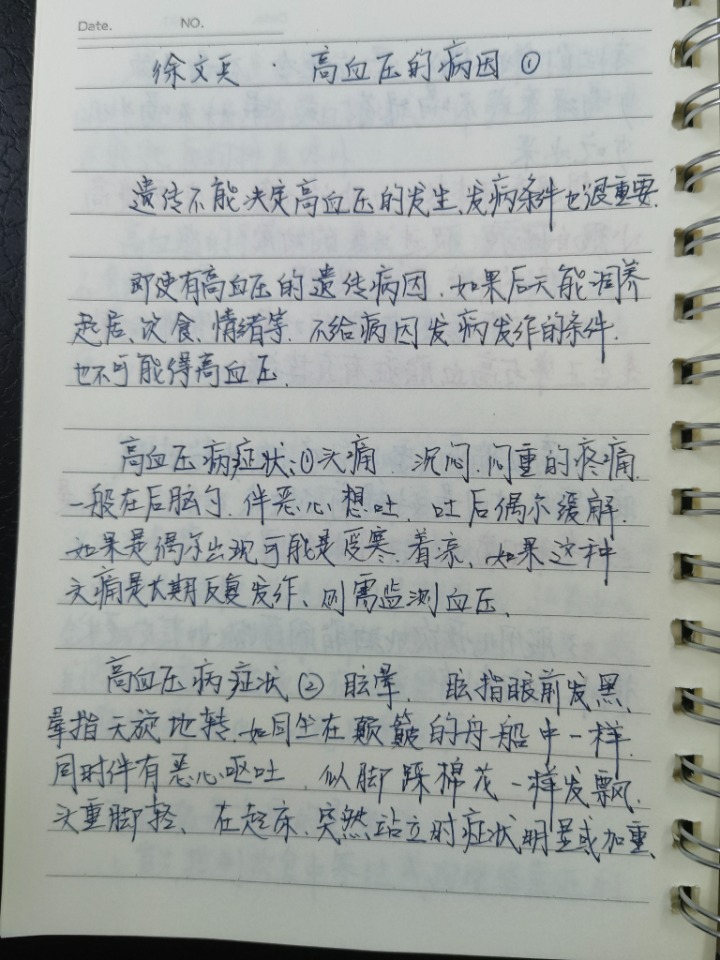 Date.
NO.
徐文兵·高血压的病因①
遗传不能决定高血压的发生、发病条件也很重要.
即使有高血压的遗传病因.如果后天能调养
起居、饮食、情绪等.不给病因发病发作的条件.
也不可能得高血压.
高血压病症状:①头痛 沉闷.闷重的疼痛.
一般在后脑勺.伴恶心想吐.吐后偶尔缓解.
如果是偶尔出现可能是受寒.着凉、如果这种
头痛是长期反复发作、则需监测血压.
高血压病症状②眩晕. 眩指眼前发黑、
晕指天旋地转.如同坐在颠簸的舟船中一样.
同时伴有恶心呕吐.似脚踩棉花一样发飘.
头重脚轻、在起床.突然站立时症状明显或加重.